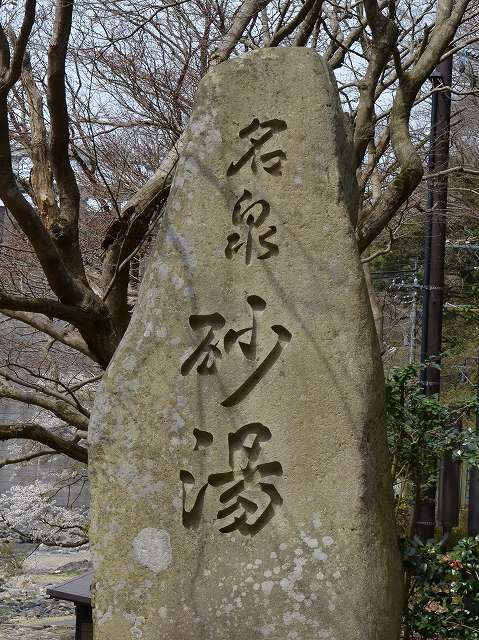 名泉砂湯